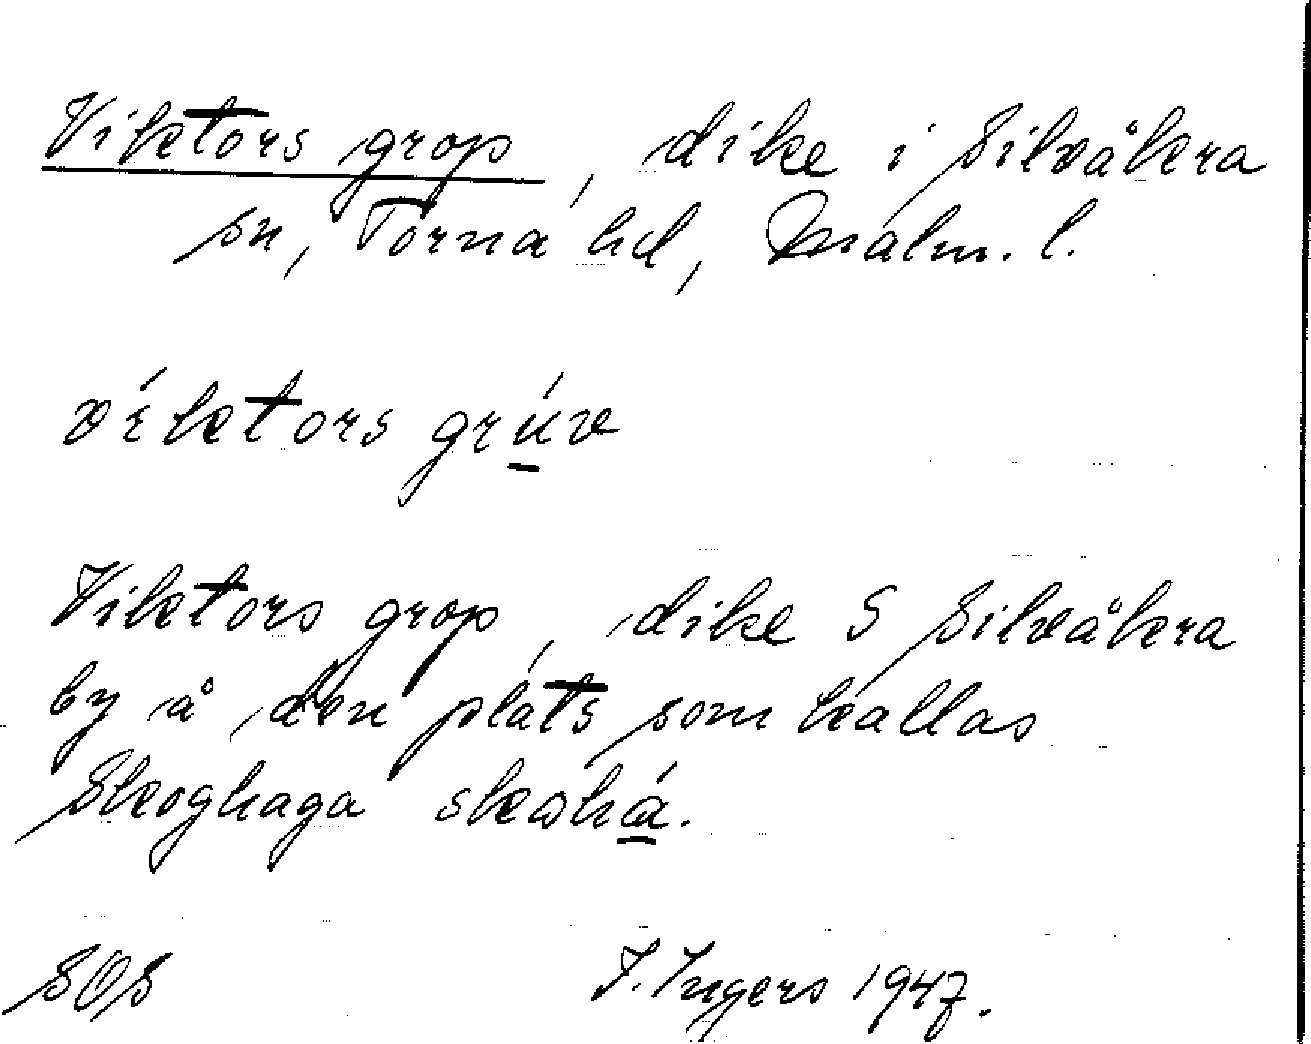 Viktors grop, dike i Silvåkra
sn, Torna hd, Malm. l.
víktors grúv
Viktors grop, dike S Silvåkra
by å den plats som kallas
Skoghaga skohá.
SOS I. Ingers 1947.